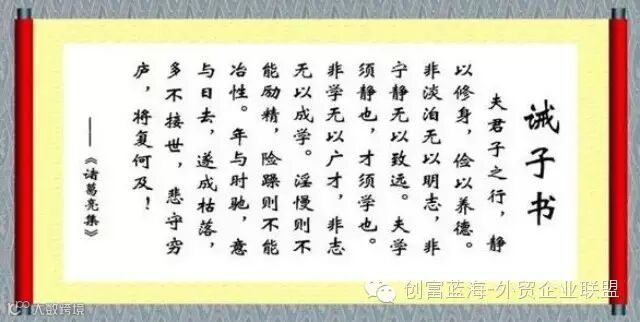 诫子书
夫君子之行，静
以修身，俭以养德。
非淡泊无以明志，非
宁静无以致远。夫学
须静也，才须学也。
非学无以广才，非志
无以成学。淫慢则不
能励精，险躁则不能
冶性。年与时驰，意
与日去，遂成枯落，
多不接世，悲守穷
庐，将复何及！
——《诸葛亮集》
创富蓝海-外贸企业联盟
大数跨境